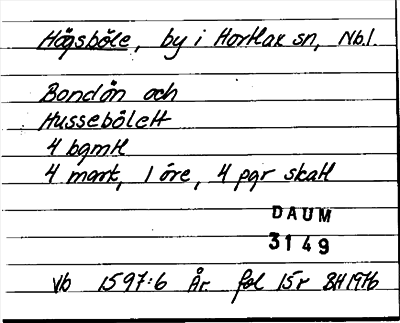 Högsböle, by i Hortlax sn, Nb.l.
Bondön och
Hussebölett
4 bgmtl
4 mark, 1 öre, 4 pgr skatt
DAUM
3149
Vb 1597:6 År fol 15r BH 1976